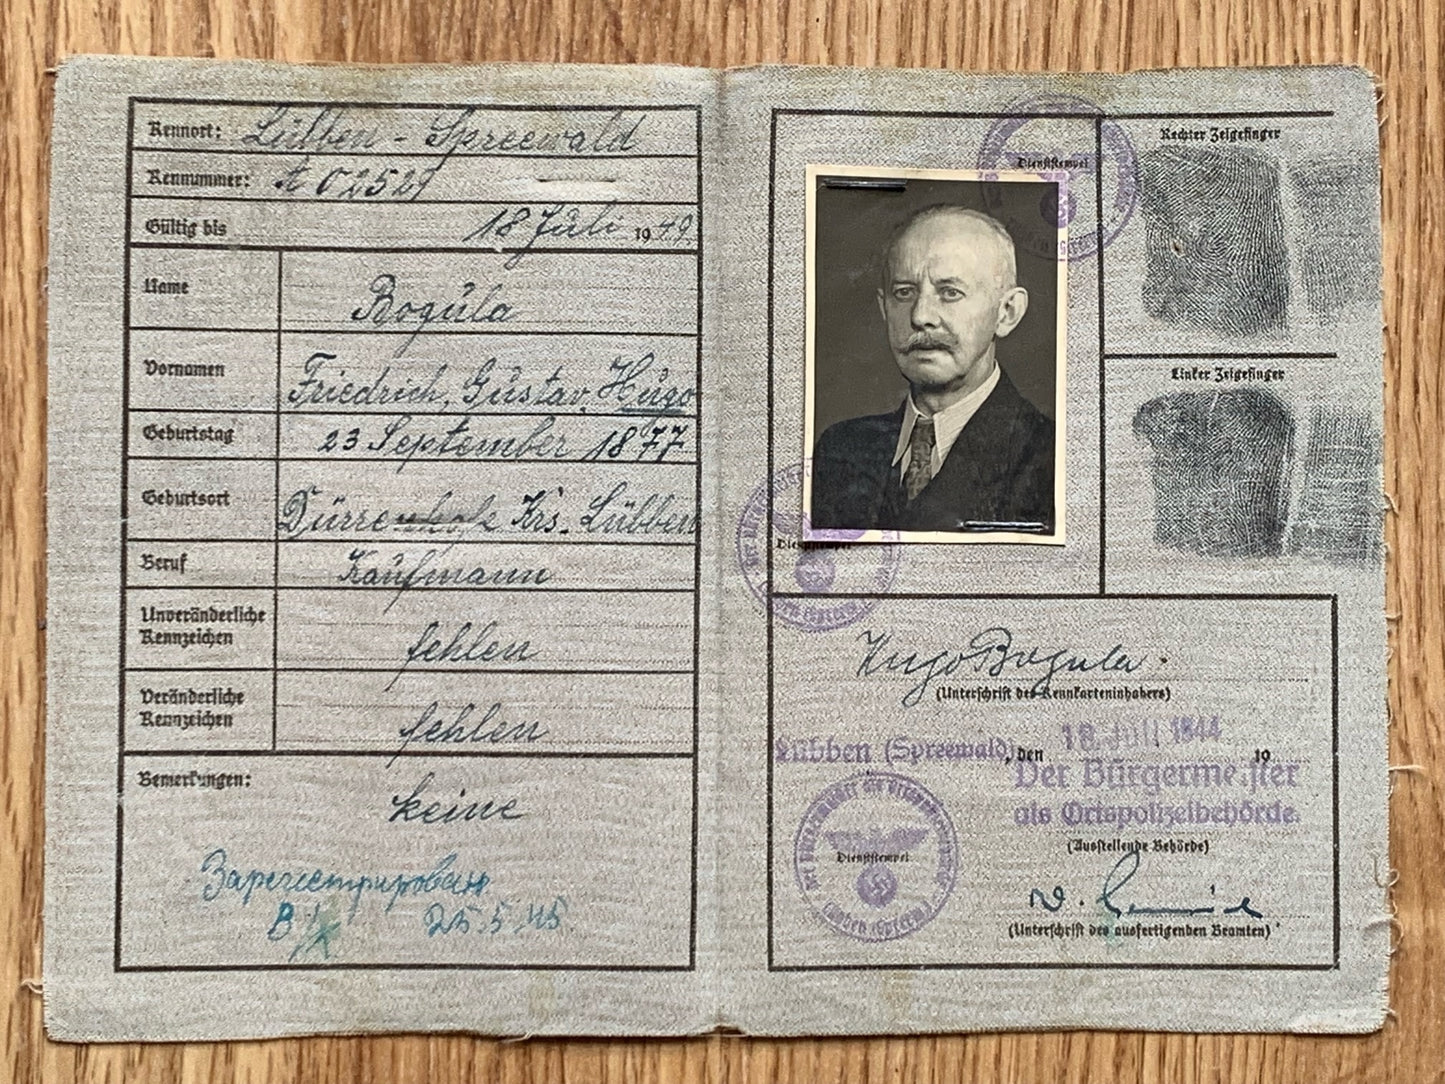 Kennort: Lübben - Spreewald
Kennummer: A 02527
Gültig bis 18 Juli 1949.
Name Bogula
Vornamen Friedrich, Gustav, Hugo
Geburtstag 23 September 1877
Geburtsort Dürrenhofe Krs. Lübben
Beruf Kaufmann
Unveränderliche
Kennzeichen fehlen
Veränderliche
Kennzeichen fehlen
Bemerkungen: keine
Зарегистрирован
25.5.45
Dienststempel
Rechter Zeigefinger
Linker Zeigefinger
Dienststempel
Hugo Bogula.
(Unterschrift des Kennkarteninhabers)
Lübben (Spreewald), den 18. Juli 1944 19
Der Bürgermeister
als Ortspolizeibehörde.
(Ausstellende Behörde)
Dienststempel
(Unterschrift des ausfertigenden Beamten)